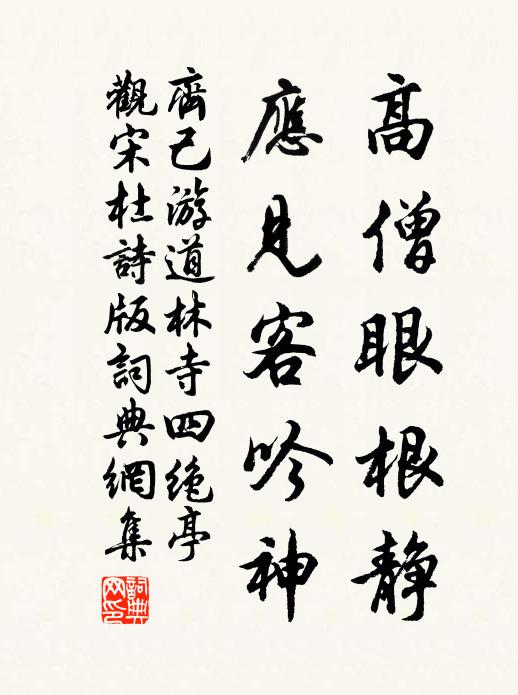 高僧眼根静
應見客吟神
齊己游道林寺四絶亭
觀宋杜詩版詞典網集
詞典
网印